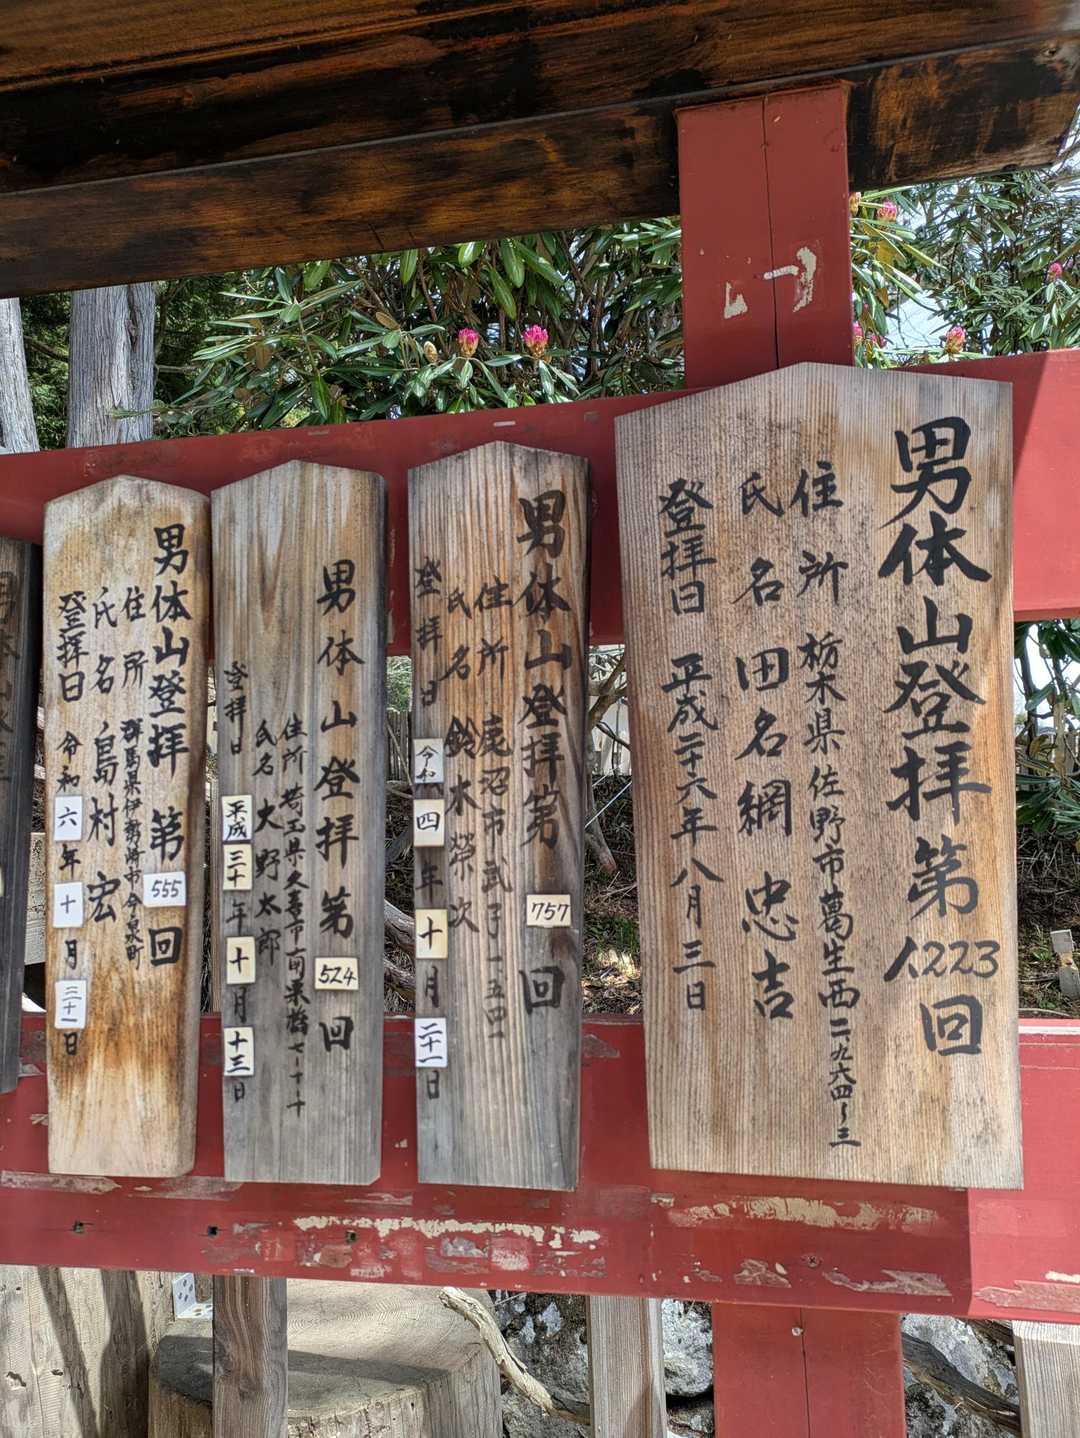 男体山登拝第1223回
住所 栃木県佐野市葛生西二、九六四ー三
氏名 田名網忠吉
登拝日 平成二十六年八月三日
男体山登拝第757回
住所 鹿沼市武子一五四一
氏名 鈴木榮次
登拝日 令和四年十月二十一日
男体山登拝第524回
住所 埼玉県久喜市南栗橋
氏名 大野太郎
登拝日 平成三十年十月十三日
男体山登拝 第555回
住所 群馬県伊勢崎市今泉町
氏名 島村 宏
登拝日 令和六年十月三十一日